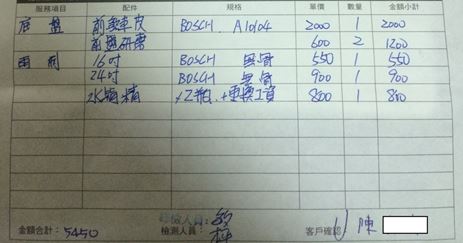 服務項目 配件 規格 單價 數量 金額小計
底盤 前煞車皮 BOSCH A10104 2000 1 2000
前盤研磨 600 2 1200
雨刷 16吋 BOSCH 無骨 550 1 550
24吋 BOSCH 無骨 900 1 900
2K 精 +更換工資 800 1 800
金額合計：5450 檢測人員： 客戶確認 陳